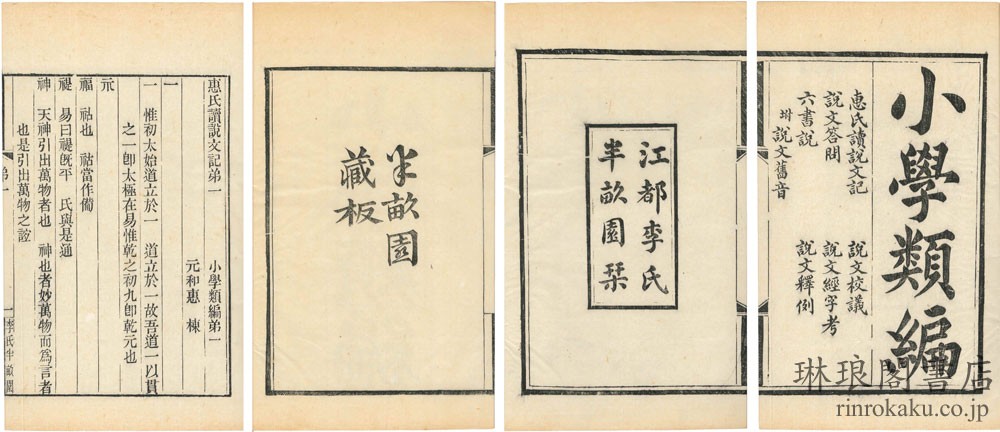 小學類編
惠氏讀說文記
說文答問
六書說
坿說文舊音
說文校議
說文經字考
說文釋例
江都李氏
半畝園栞
半畝園
藏板
惠氏讀說文記弟一
小學類編弟一
元和惠 棟
一
一 惟初太始道立於一 道立於一故吾道一以貫
之一卽太極在易惟乾之初九卽乾元也
福 祜也 祜當作備
禔 易曰禔旣平 氏與是通
神 天神引出萬物者也 神也者妙萬物而爲言者
也是引出萬物之誼
弟一
一
李氏半畝園
琳琅閣書店
rinrokaku.co.jp